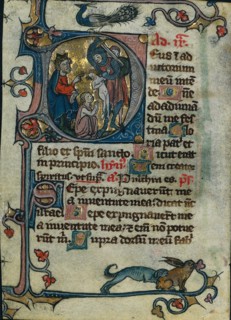 Ad. n.
Deus i ad
iutorium
meum inte
de Domine
ad adiuua
dum me fes
tina Glo
ria pat et
filio et spui sancto Sicut erat
in principio
spiritus ut sup. a. Pulchra es. ps.
Sepe expugnauerunt me
a iuuentute mea dicat nc
israel Sepe expugnauerunt me
a iuuentute mea etei non potue
runt m Supra dorsum meum fab